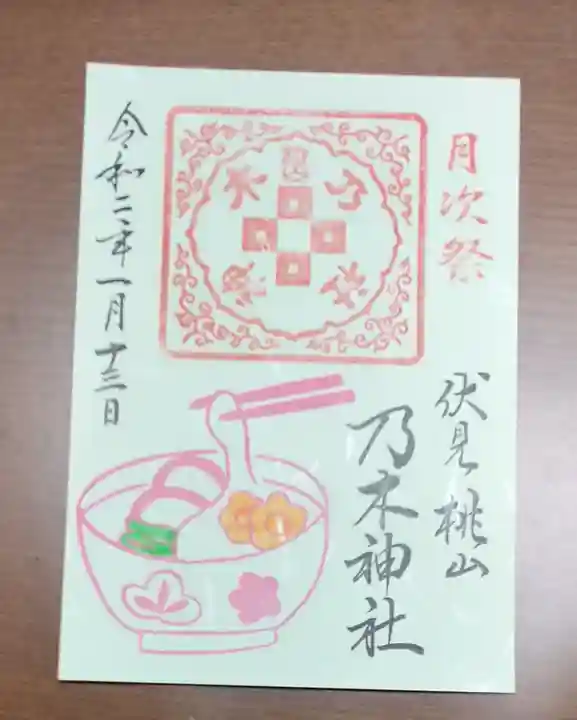 月次祭
伏見桃山
乃木神社
令和二年一月十三日